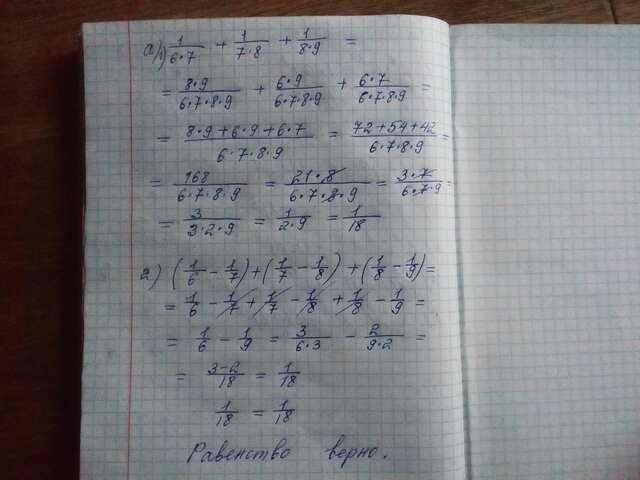 а) 1) 1/(6·7) + 1/(7·8) + 1/(8·9) =
= (8·9)/(6·7·8·9) + (6·9)/(6·7·8·9) + (6·7)/(6·7·8·9) =
= (8·9+6·9+6·7)/(6·7·8·9) = (72+54+42)/(6·7·8·9) =
= 168/(6·7·8·9) = (21·8)/(6·7·8·9) = (3·7)/(6·7·9) =
= 3/(3·2·9) = 1/(2·9) = 1/18
2) (1/6 - 1/7) + (1/7 - 1/8) + (1/8 - 1/9) =
= 1/6 - 1/7 + 1/7 - 1/8 + 1/8 - 1/9 =
= 1/6 - 1/9 = 3/(6·3) - 2/(9·2) =
= (3-2)/18 = 1/18
1/18 = 1/18
Равенство верно.